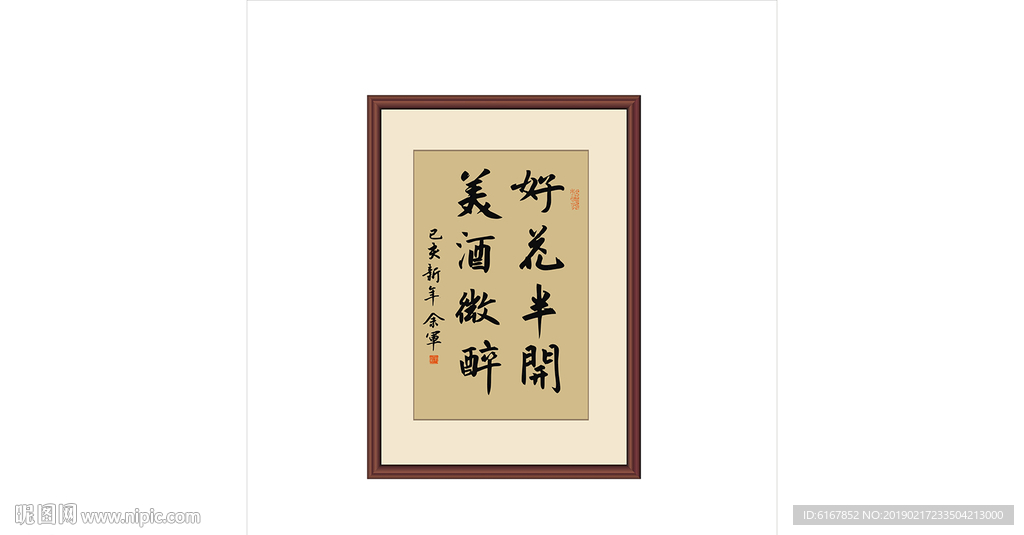 好花半開
美酒微醉
己亥新年 余軍
昵图网 www.nipic.com
ID:6167852 NO:20190217233504213000